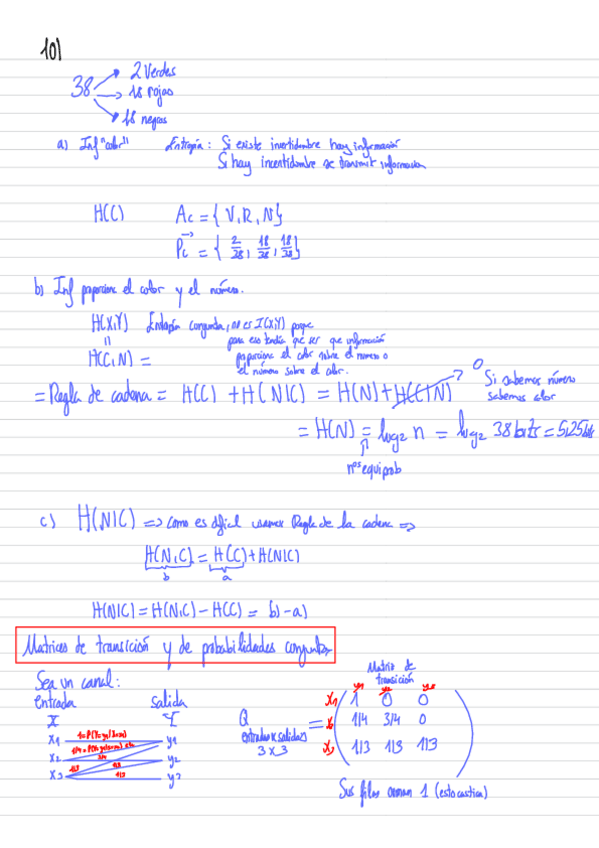 10)
38
2 Verdes
18 rojas
18 negras
a) Inf "color" Entropía: Si existe incertidumbre hay información
Si hay incentidumbre se transmit informacion
H(C) Ac = { V, R, N }
Pc = { 2/38, 18/38, 18/38 }
b) Inf proporciona el color y el número.
H(X,Y) Entropía conjunta, no es I(X;Y) porque
para eso tendría que ser que información
H(C,N) = proporciona el color sobre el numero o
el número sobre el color.
= Regla de cadena = H(C) + H(N|C) = H(N) + H(C|N) 0 Si sabemos número
sabemos color
= H(N) = log2 n = log2 38 bits = 5,25 bits
nºs equiprob
c) H(N|C) => como es dificil usamos Regla de la cadena =>
H(N,C) = H(C) + H(N|C)
b a
H(N|C) = H(N,C) - H(C) = b) - a)
Matrices de transición y de probabilidades conjuntas
Sea un canal:
entrada salida
X Y
x1 1=P(Y=y1|X=x1) y1
x2 3/4 y2
x3 1/3 1/3 1/3 y3
Matriz de
transición
y1 y2 y3
x1 1 0 0
Q = x2 1/4 3/4 0
entradas x salidas
3 x 3
x3 1/3 1/3 1/3
Sus filas suman 1 (estocastica)